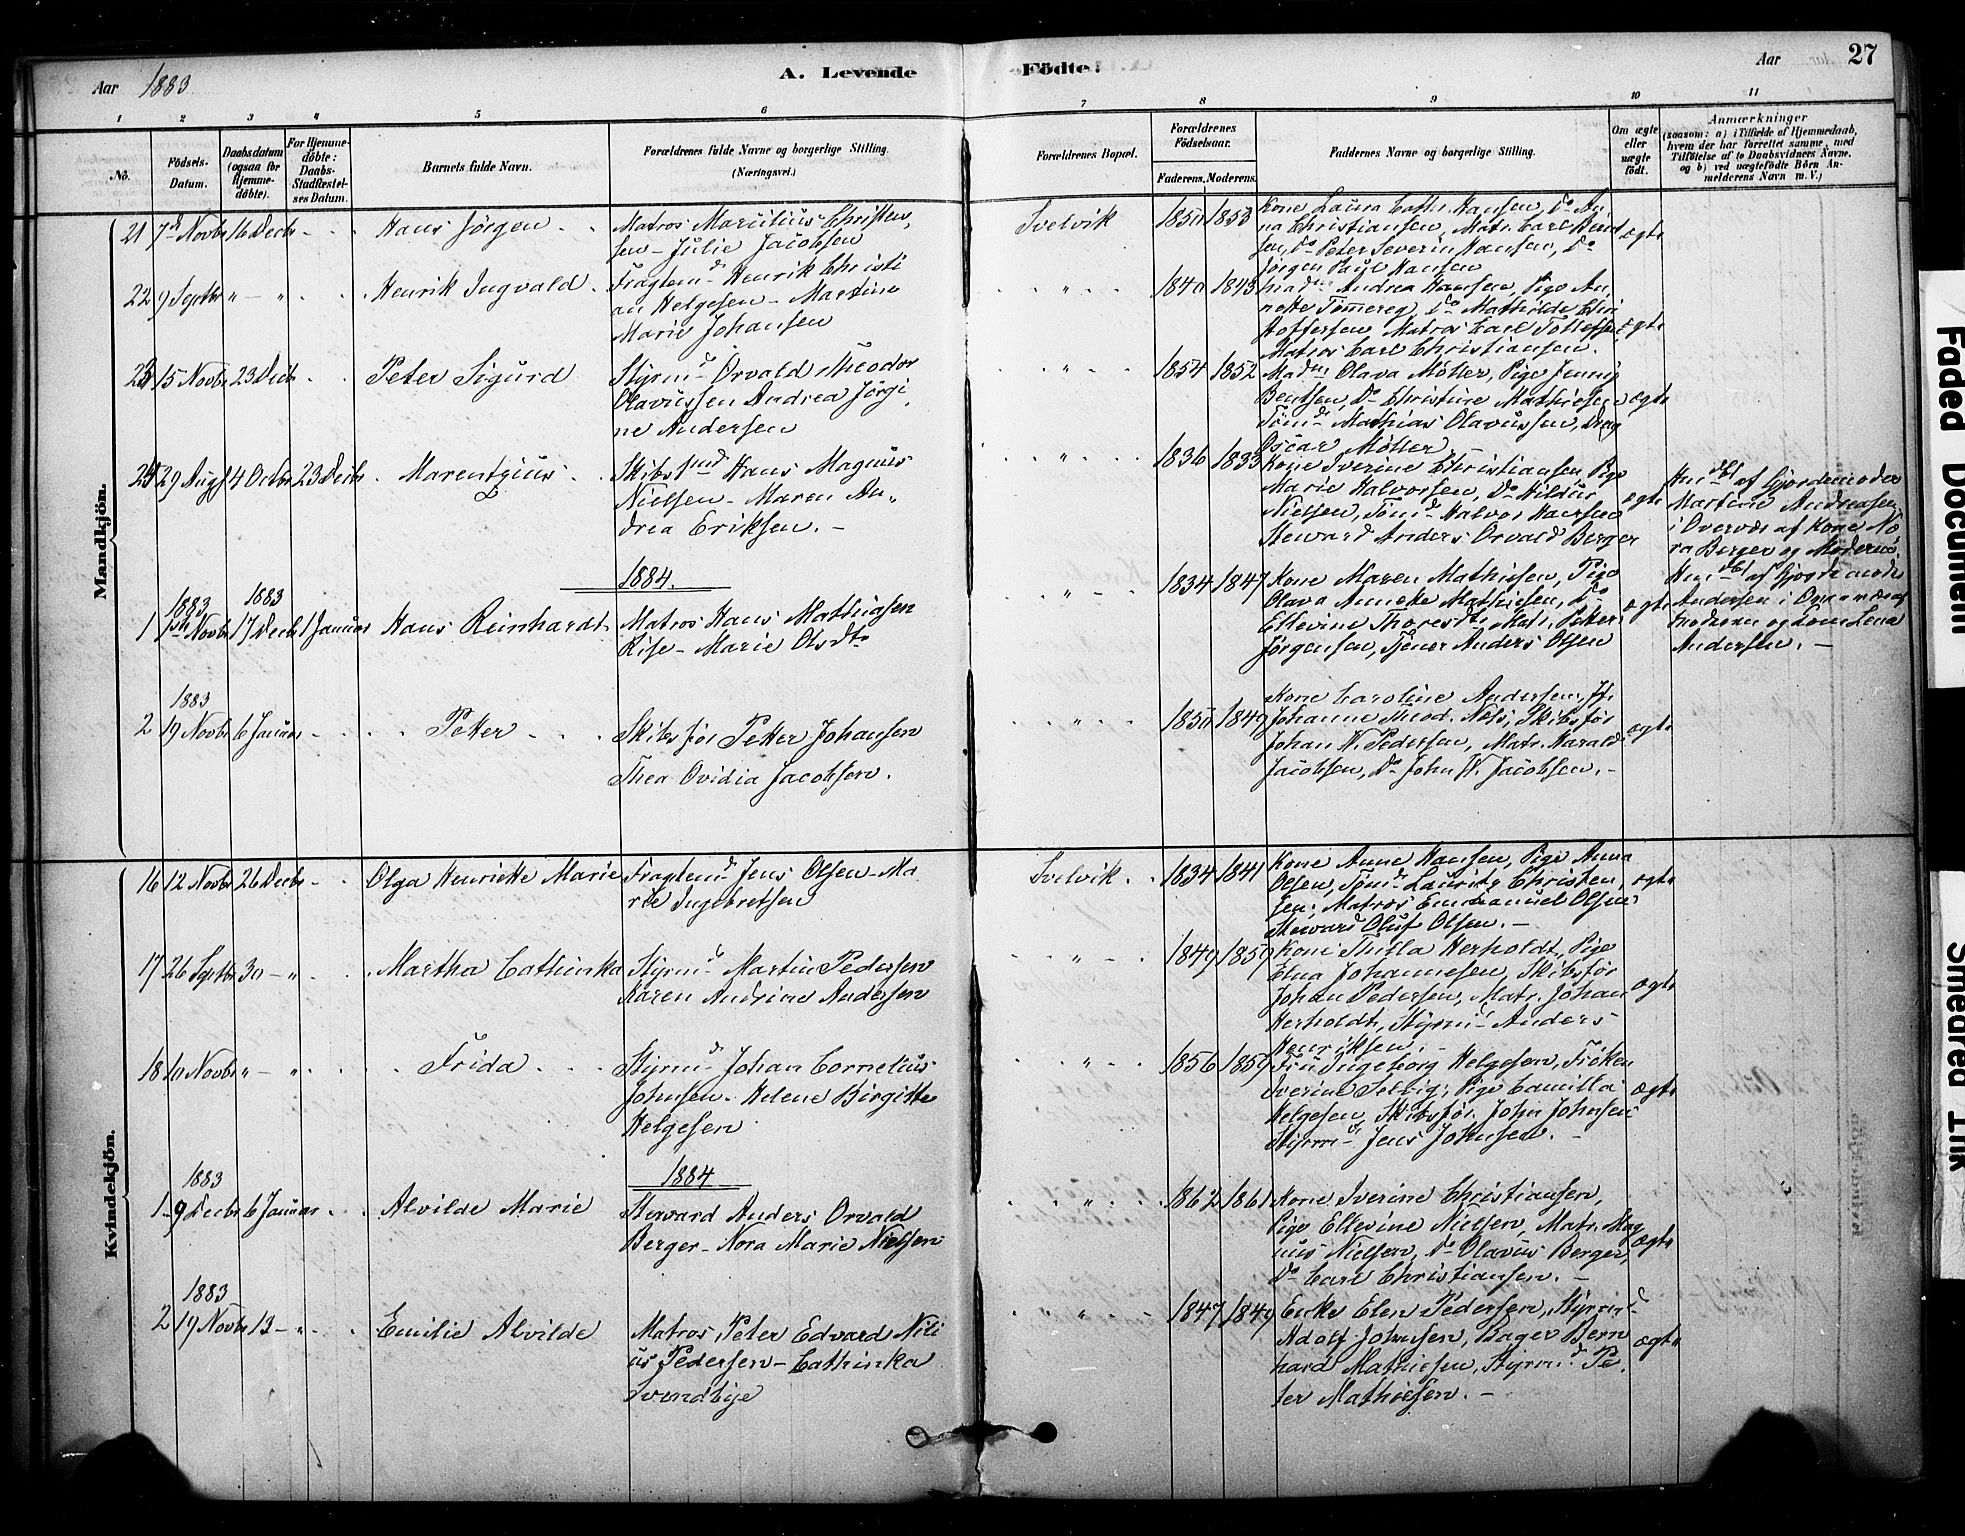 Aar 1883
A. Levende Födte.
Aar 27
1 2 3 4 5 6 7 8 9 10 11
No.
Födsels-Datum.
Daabsdatum (ogsaa for Hjemmedöbte).
For Hjemmedöbte: Daabs-Stadfæstelses Datum.
Barnets fulde Navn.
Forældrenes fulde Navne og borgerlige Stilling. (Næringsvei.)
Forældrenes Bopæl.
Forældrenes Födselsaar.
Faderens. Moderens.
Faddernes Navne og borgerlige Stilling.
Om ægte eller uægte födt.
Anmærkninger
(saasom: a) i Tilfælde af Hjemmedaab, hvem der har forrettet samme, med Tilföielse af to Daabsvidners Navne, og b) ved uægtefödte Börn Anmelderens Navn m. V.)
Mandkjön.
21 7de Novbr 16 Decbr Hans Jörgen
Matros Christen,
sen - Julie Jacobsen
Svelvik 1850 1853
Kone Laura Cath. Hansen, Do An,
na Christiansen, Matr. Carl
sen, Do Peter Severin Hansen, Do
Jörgen Paul Hansen
ægte
22 9 Septbr " - " Henrik Ingvald
Fragtemd Henrik Christi
an Helgesen - Martine
Marie Johansen
" 1840 1843
Andrea Hansen, Pige An,
nette Do Mathilde Chri
stoffersen Matros Carl
Matros Carl Christiansen.
ægte
23 15 Novbr 23 Decbr Peter Sigurd
Styrmd Orvald Theodor
Olavussen Andrea Jörgi,
ne Andersen
" 1854 1852
Madm Olava Möller, Pige Jenny
Bentsen, Do Christine Mathiesen
Tömd Mathias Olavussen,
Oscar Möller
ægte
24 29 Augs 4 Octbr 23 Decbr Marentzius
Skibstmd Hans Magnus
Nielsen - Maren An,
drea Eriksen. -
" 1836 1833
Kone Iverine Christiansen, Pige
Marie Halvorsen, Do Hildur
Nielsen, Tömd Halvor Hansen
Steward Anders Orvald Berger
ægte
af Gjordemoder
Martine Andreasen
i Overvær af Kone No
ra Berger og Moderen.
1884.
1883 1883
1 1ste Novbr 17 Decbr 1 Januar Hans Reinhardt
Matros Hans Mathiasen
Rise - Marie Olsdtr
" 1834 1847
Kone Maren Mathisen, Pige
Olava Annette Mathisen, Do
Ellevine Thoresdtr, Matr. Petter
Jörgensen, Tjener Anders Olsen
ægte
af Gjordemoder
Andersen i Overvær af
Moderen og Kone Lena
Andersen. -
1883
2 19 Novbr 6 Januar Petter
Skibsför Petter Johansen
Thea Ovidia Jacobsen.
" 1850 1849
Kone Caroline Andersen,
Johanne Theod. Næss, Skibsför
Johan N. Pedersen, Matr. Harald
Jacobsen, Do John H. Jacobsen. -
ægte
Kvindekjön.
16 12 Novbr 26 Decbr Olga Henriette Marie
Fragtemd Jens Olsen - Ma
rie Ingebretsen
Svelvik 1834 1841
Kone Anne Hansen, Pige Anna
Olsen, Tömd Lauritz Christen,
sen, Matros Emmanuel Olsen,
Steward Oluf Olsen. -
ægte
17 26 Septbr 30 - " Martha Cathinka
Styrmd Martin Pedersen
Karen Andrine Andersen
" 1849 1859
Kone Thilla Herholdt, Pige
Elna Johannesen, Skibsför
Johan Pedersen, Matr. Johan
Herholdt, Styrmd Anders
Henriksen. -
ægte
18 10 Novbr " - " Frida
Styrmd Johan Cornelius
Johnsen - Helene Birgitte
Helgesen
" 1856 1859
Fru Ingeborg Helgesen, Fröken
Iverine Solvig, Pige Camilla
Helgesen, Skibsför. John Johnsen
Styrmd Jens Johnsen. -
ægte
1884
1883
1 9 Decbr 6 Januar Alvilde Marie
Steward Anders Orvald
Berger - Nora Marie Nielsen
" 1862 1861
Kone Iverine Christiansen,
Pige Ellevine Nielsen, Matr. Mag
nus Nielsen, Do Olavus Berger,
Do Carl Christiansen. -
ægte
1883
2 19 Novbr 13 - " Emilie Alvilde
Matros Peter Edvard Nili
us Pedersen - Cathinka
Svendbye
" 1847 1849
Enke Elen Pedersen, Styrmd
Adolf Johnsen, Bager Bern
hard Mathiesen, Styrmd Pe,
ter Mathiesen. -
ægte
Faded Document
Smeared Ink